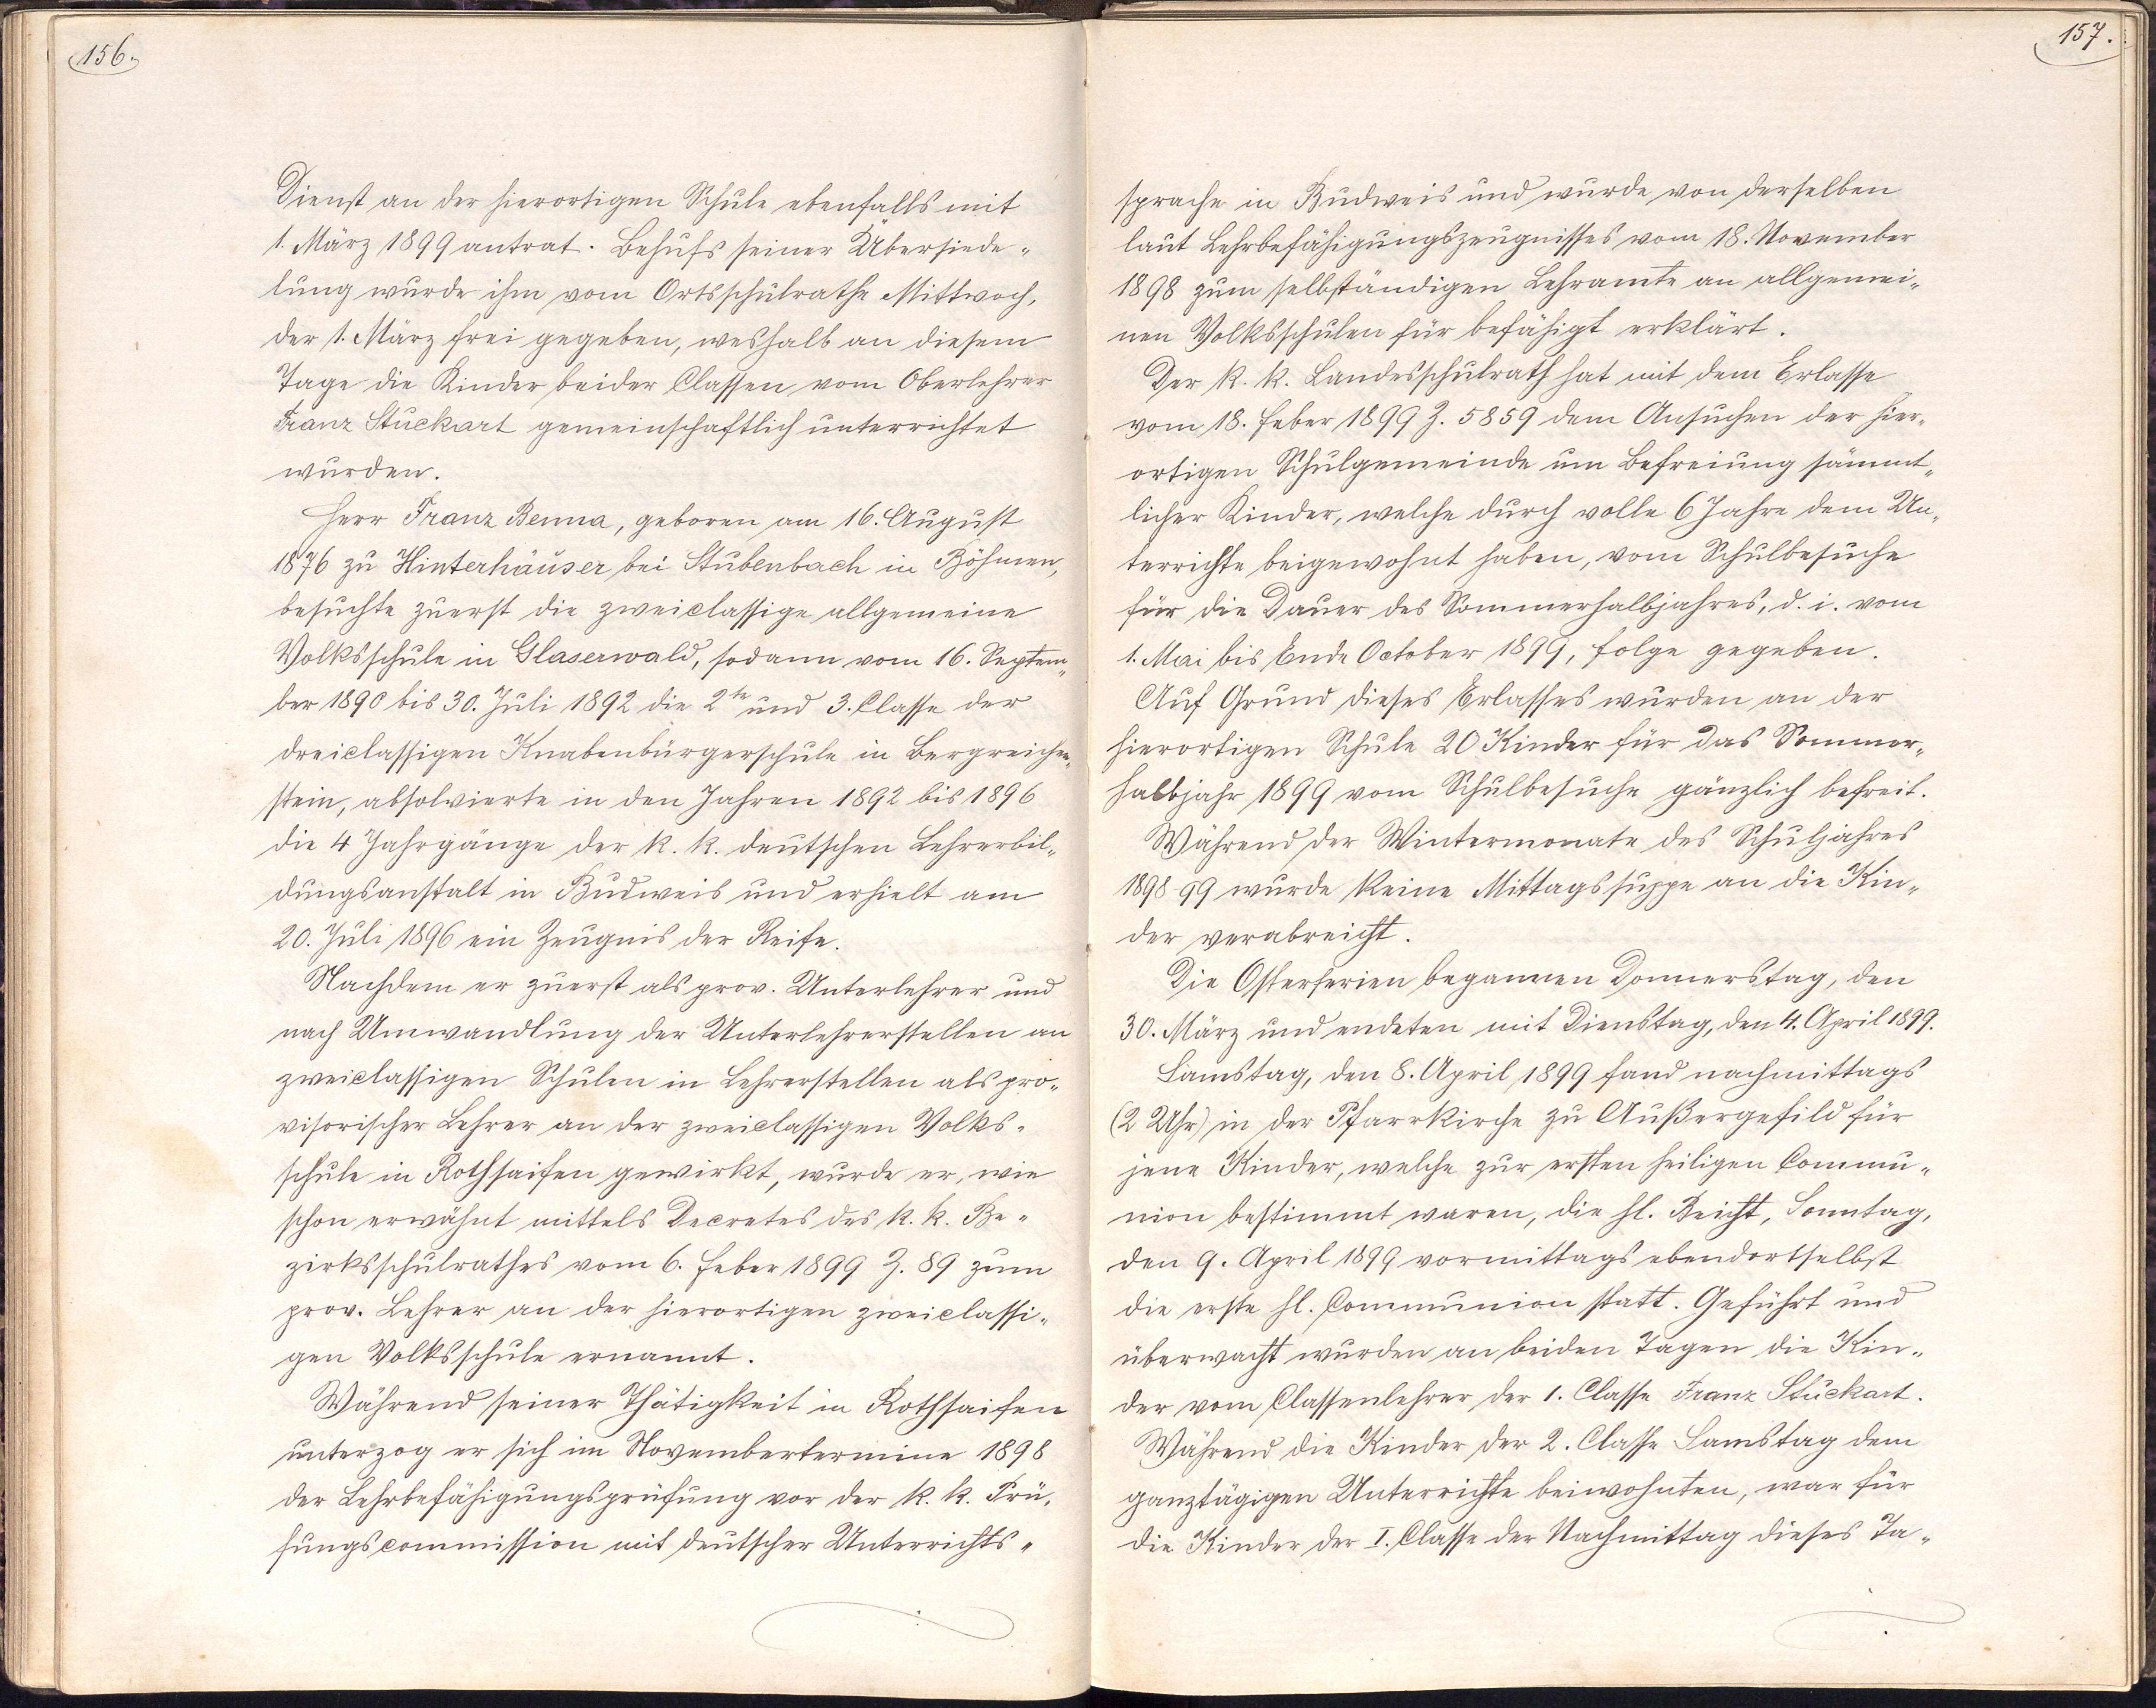 156.
Dienst an der hierortigen Schule ebenfalls mit
1. März 1899 antrat. Behufs seiner Übersiede-
lung wurde ihm vom Ortsschulrathe Mittwoch,
der 1. März frei gegeben, weshalb an diesem
Tage die Kinder beider Classen vom Oberlehrer
Franz Stuckart gemeinschaftlich unterrichtet
wurden.
Herr Franz Benna, geboren am 16. August
1876 zu Hinterhäuser bei Stubenbach in Böhmen,
besuchte zuerst die zweiclassige allgemeine
Volksschule in Glaserwald, sodann vom 16. Septem-
ber 1890 bis 30. Juli 1892 die 2te und 3. Classe der
dreiclassigen Knabenbürgerschule in Bergreichen-
stein, absolvierte in den Jahren 1892 bis 1896
die 4 Jahrgänge der k. k. deutschen Lehrerbil-
dungsanstalt in Budweis und erhielt am
20. Juli 1896 ein Zeugnis der Reife.
Nachdem er zuerst als prov. Unterlehrer und
nach Umwandlung der Unterlehrerstellen an
zweiclassigen Schulen in Lehrerstellen als pro-
visorischer Lehrer an der zweiclassigen Volks-
schule in Rothsaifen gewirkt, wurde er, wie
schon erwähnt mittels Decretes des k. k. Be-
zirksschulrathes vom 6. Feber 1899 Z. 89 zum
prov. Lehrer an der hierortigen zweiclassi-
gen Volksschule ernannt.
Während seiner Thätigkeit in Rothsaifen
unterzog er sich im Novembertermine 1898
der Lehrbefähigungsprüfung vor der k. k. Prü-
fungscommission mit deutscher Unterrichts-
157.
sprache in Budweis und wurde von derselben
laut Lehrbefähigungszeugnisses vom 18. November
1898 zum selbständigen Lehramte an allgemei-
nen Volksschulen für befähigt erklärt.
Der k. k. Landesschulrath hat mit dem Erlasse
vom 18. Feber 1899 Z. 5859 dem Ansuchen der hier-
ortigen Schulgemeinde um Befreiung sämmt-
licher Kinder, welche durch volle 6 Jahre dem Un-
terrichte beigewohnt haben, vom Schulbesuche
für die Dauer des Sommerhalbjahres, d. i. vom
1. Mai bis Ende October 1899, Folge gegeben.
Auf Grund dieses Erlasses wurden an der
hierortigen Schule 20 Kinder für das Sommer-
halbjahr 1899 vom Schulbesuche gänzlich befreit.
Während der Wintermonate des Schuljahres
1898 99 wurde keine Mittagssuppe an die Kin-
der verabreicht.
Die Osterferien begannen Donnerstag, den
30. März und endeten mit Dienstag, den 4. April 1899.
Samstag, den 8. April 1899 fand nachmittags
(2 Uhr) in der Pfarrkirche zu Außergefild für
jene Kinder, welche zur ersten heiligen Commu-
nion bestimmt waren, die hl. Beicht, Sonntag,
den 9. April 1899 vormittags ebendortselbst
die erste hl. Communion statt. Geführt und
überwacht wurden an beiden Tagen die Kin-
der vom Classenlehrer der 1. Classe Franz Stuckart.
Während die Kinder der 2. Classe Samstag dem
ganztägigen Unterrichte beiwohnten, war für
die Kinder der I. Classe der Nachmittag dieses Ta-